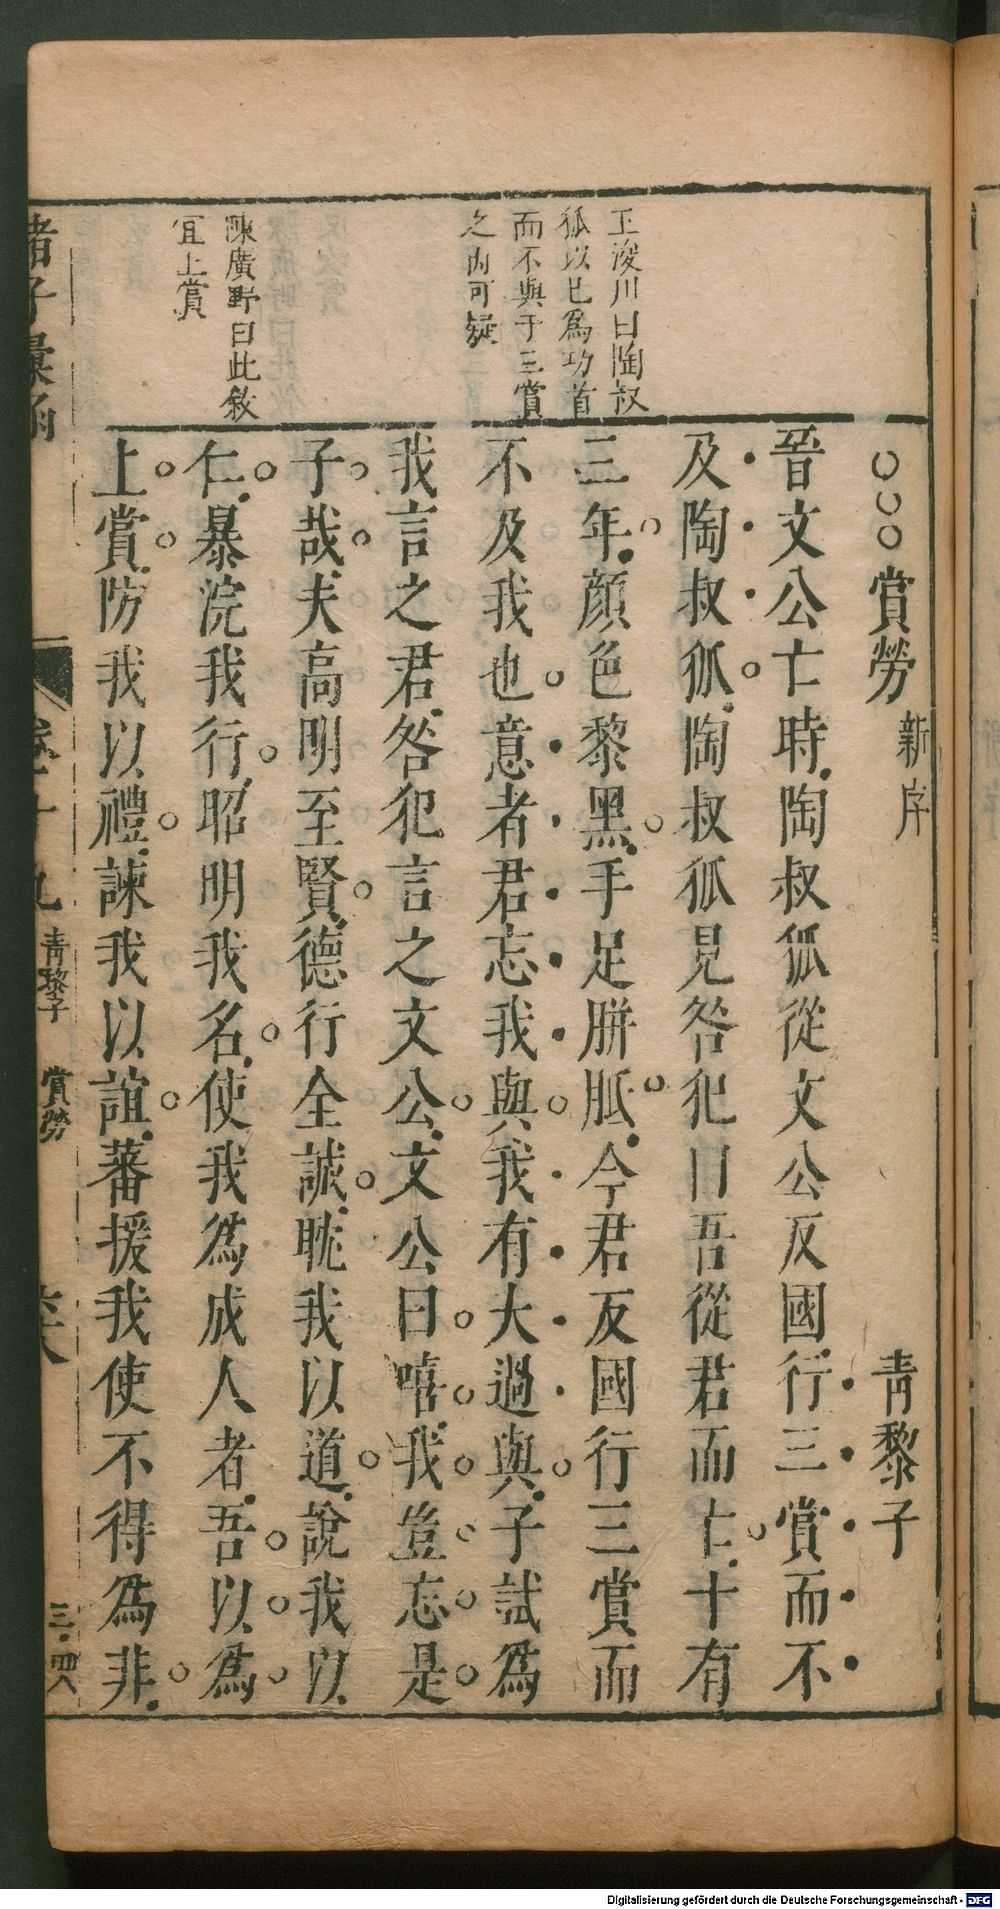 賞勞 新序 青黎子
晉文公亡時陶叔狐從文公反國行三賞而不
及陶叔狐陶叔狐見咎犯曰吾從君而亡十有
三年顏色黎黑手足胼胝今君反國行三賞而
不及我也意者君忘我與我有大過與子試為
我言之君咎犯言之文公文公曰嘻我豈忘是
子哉夫高明至賢德行全誠耽我以道說我以
仁暴浣我行昭明我名使我為成人者吾以為
上賞防我以禮諫我以誼蕃援我使不得為非
王浚川曰陶叔
狐以已為功首
而不與于三賞
之內可疑
陳廣野曰此敘
宜上賞
諸子彙函
卷十九 青黎子 賞勞
三四八
Digitalisierung gefördert durch die Deutsche Forschungsgemeinschaft - DFG